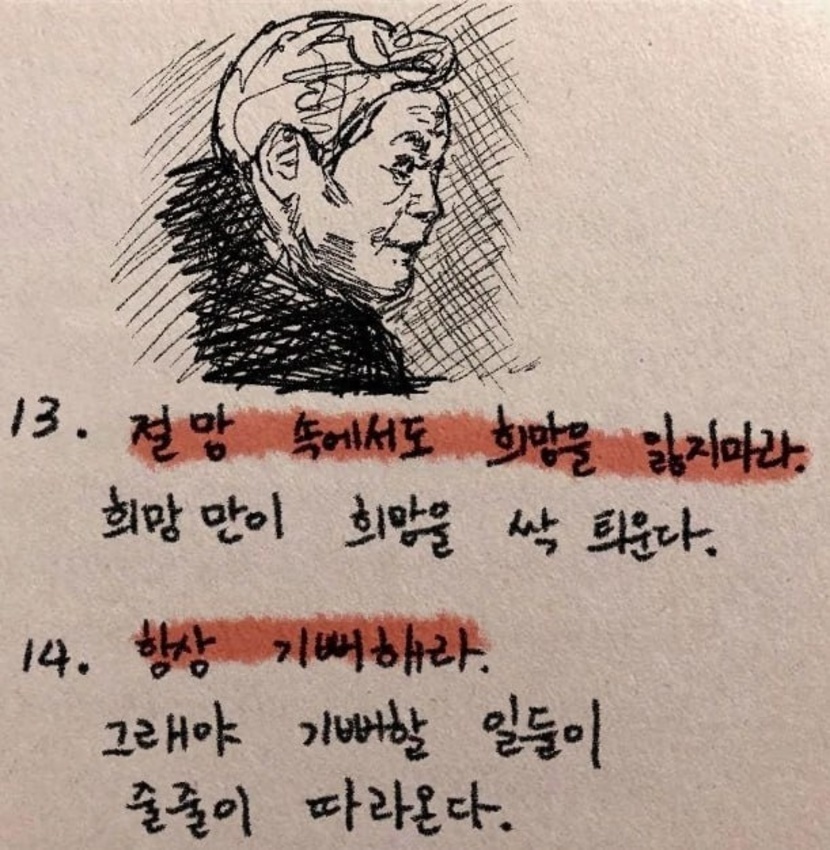 13. 절망 속에서도 희망을 잃지마라.
희망만이 희망을 싹 틔운다.
14. 항상 기뻐해라.
그래야 기뻐할 일들이
줄줄이 따라온다.